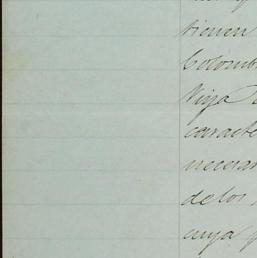 tienen
Colomb
Vieja
caracte
necesar
de los
cuya p